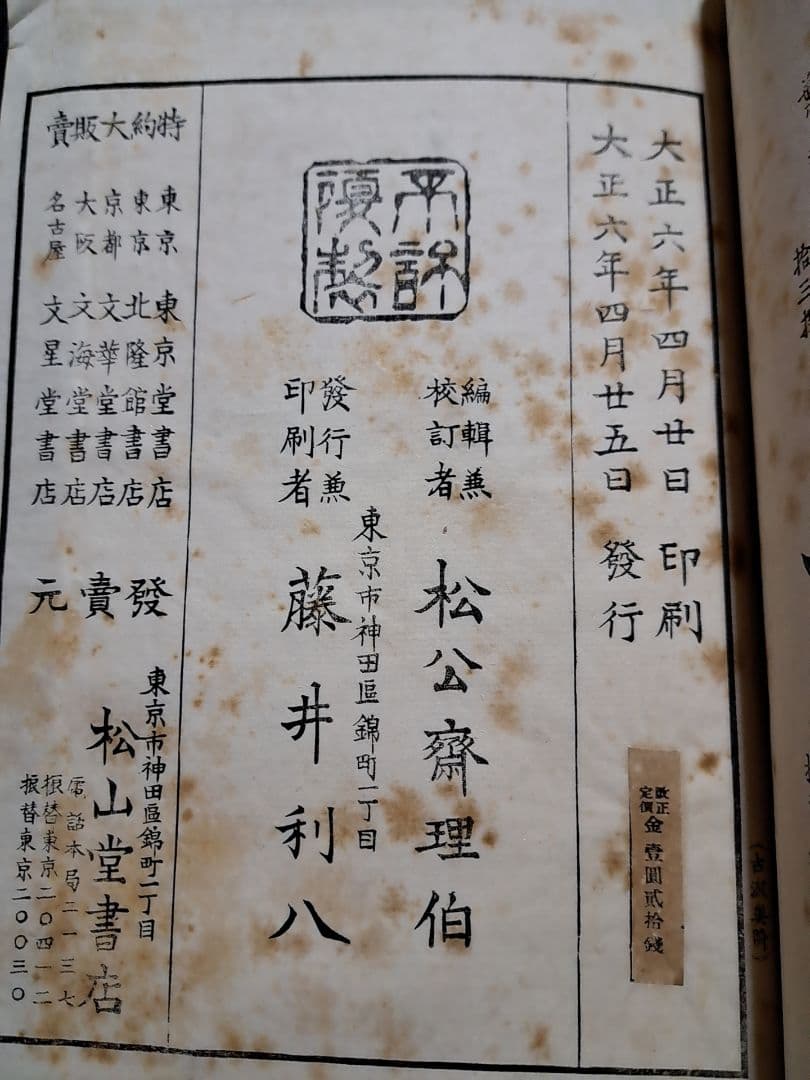 大正六年四月廿日 印刷
大正六年四月廿五日 發行
改正
定價
金壹圓貳拾錢
不許
復製
編輯兼
校訂者
松公齋理伯
東京市神田區錦町一丁目
發行兼
印刷者
藤井利八
特約大販賣
東京 東京堂書店
東京 北隆館書店
京都 文華堂書店
大阪 文海堂書店
名古屋 文星堂書店
發賣元
東京市神田區錦町一丁目
松山堂書店
電話本局二一三七
振替東京二〇四一二
振替東京二〇〇三〇